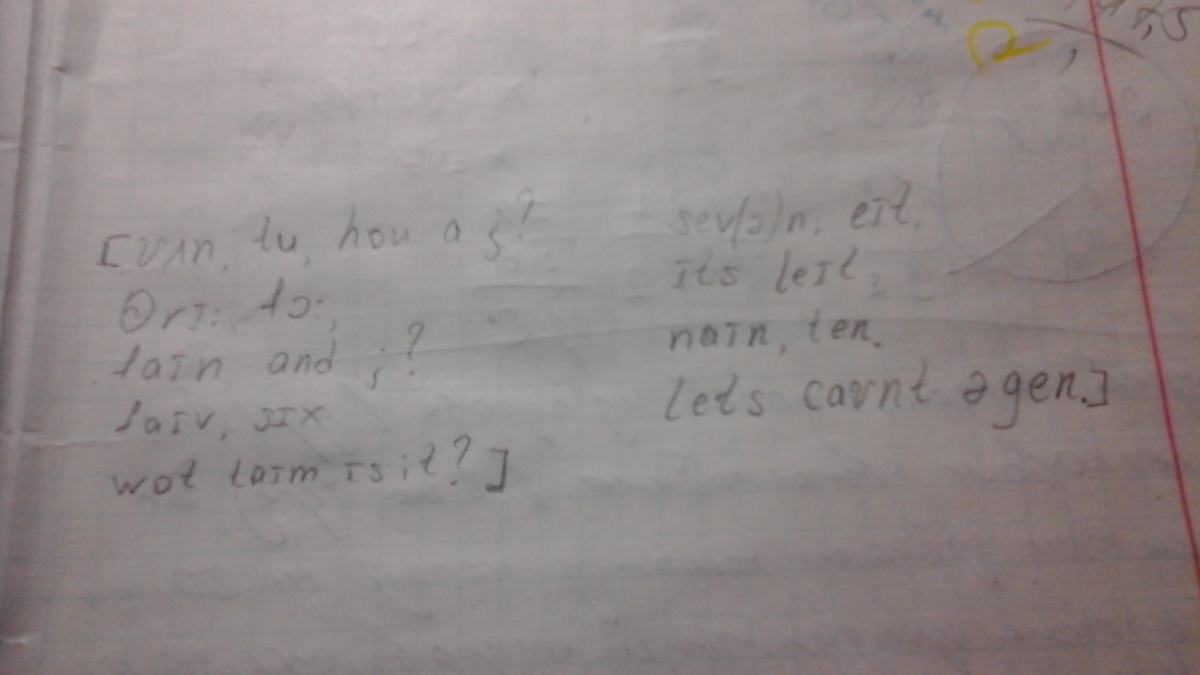 [vʌn, tu, hou a ʒ?
Θrɪ:, fɔ:,
faɪn and ʒ?
faɪv, sɪx
wot taɪm ɪs it?]
sev(ə)n, eɪt,
ɪts leɪt,
naɪn, ten.
lets caʊnt əgen.]